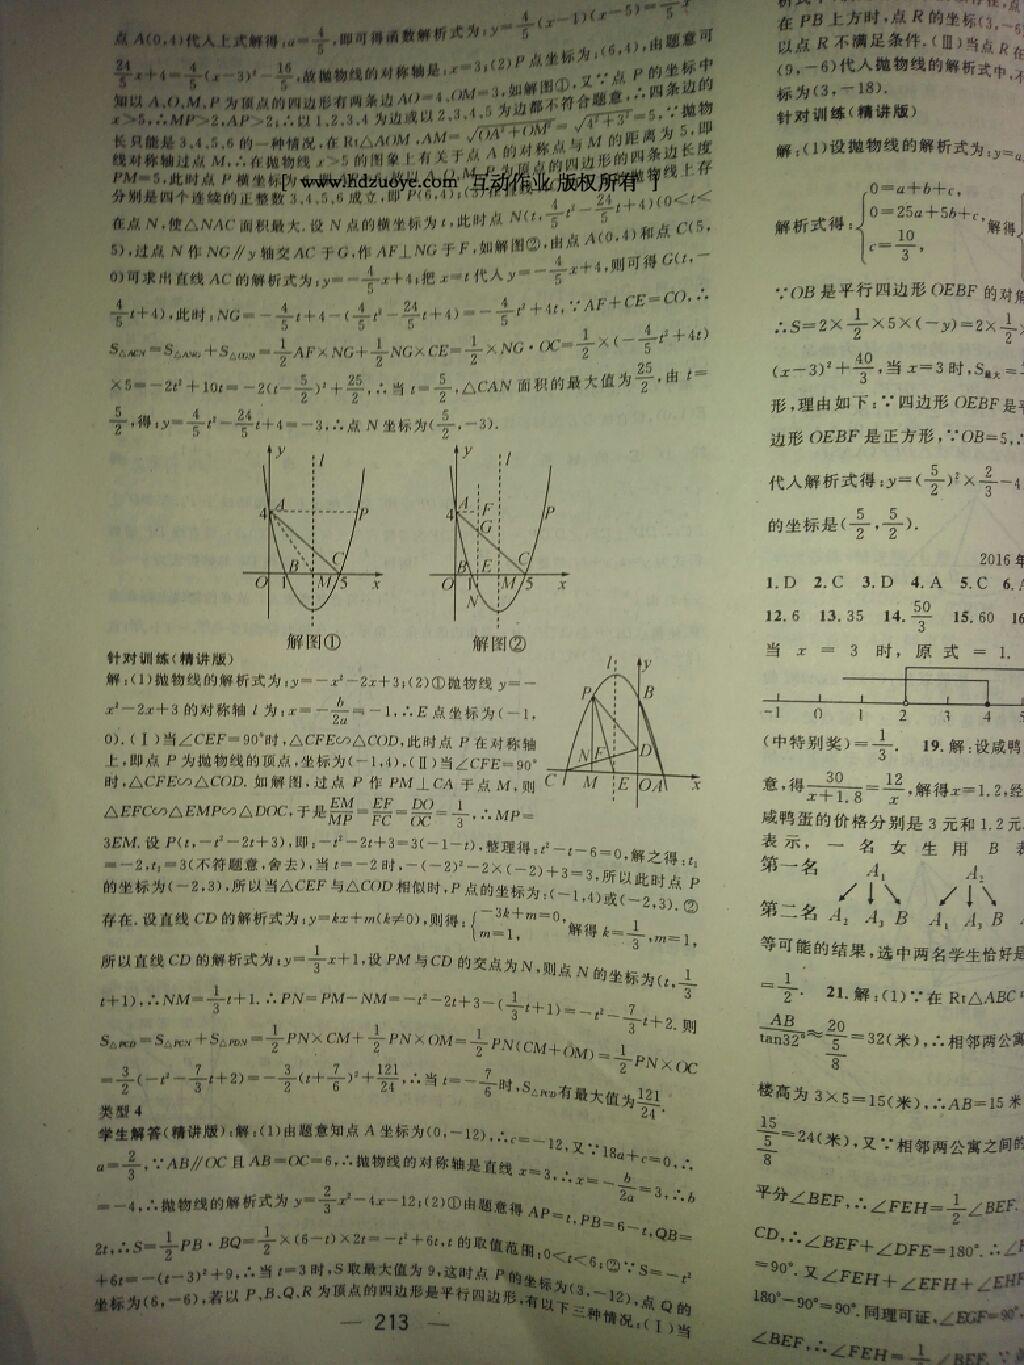 点A(0,4)代入上式解得:a=4/5,即可得函数解析式为:y=4/5(x-1)(x-5)=4/5x²-
24/5x+4=4/5(x-3)²-16/5,故抛物线的对称轴是:x=3;(2)P点坐标为:(6,4),由题意可
知以A、O、M、P为顶点的四边形有两条边AO=4、OM=3,如解图①,又∵点P的坐标中
x>5,∴MP>2,AP>2;∴以1、2、3、4为边或以2、3、4、5为边都不符合题意,∴四条边的
长只能是3、4、5、6的一种情况,在Rt△AOM,AM=√OA²+OM²=√4²+3²=5,∵抛物
线对称轴过点M,∴在抛物线x>5的图象上有关于点A的对称点与M的距离为5,即
PM=5,此时点P横坐标为6,即AP=6;故以A、O、M、P为顶点的四边形的四条边长度
[ www.hdzuoye.com 互动作业 版权所有 ]
分别是四个连续的正整数3、4、5、6成立,即P(6,4);(3)在直线AC的下方的抛物线上存
在点N,使△NAC面积最大.设N点的横坐标为t,此时点N(t,4/5t²-24/5t+4)(0<t<
5),过点N作NG∥y轴交AC于G,作AF⊥NG于F,如解图②,由点A(0,4)和点C(5,
0)可求出直线AC的解析式为:y=-4/5x+4;把x=t代入y=-4/5x+4,则可得G(t,-
4/5t+4),此时:NG=-4/5t+4-(4/5t²-24/5t+4)=-4/5t²+4t,∵AF+CE=CO,∴
S△ACN=S△ANG+S△CGN=1/2AF×NG+1/2NG×CE=1/2×NG·OC=1/2×(-4/5t²+4t)
×5=-2t²+10t=-2(t-5/2)²+25/2,∴当t=5/2,△CAN面积的最大值为25/2,由t=
5/2,得:y=4/5t²-24/5t+4=-3,∴点N坐标为(5/2,-3).
y l A 4 P B C O 1 M 5 x
解图①
y l A F 4 P G B E C O 1 M 5 x N
解图②
针对训练(精讲版)
解:(1)抛物线的解析式为:y=-x²-2x+3;(2)①抛物线y=-
x²-2x+3的对称轴l为:x=-b/2a=-1,∴E点坐标为(-1,
0).(Ⅰ)当∠CEF=90°时,△CFE∽△COD,此时点P在对称轴
上,即点P为抛物线的顶点,坐标为(-1,4),(Ⅱ)当∠CFE=90°
时,△CFE∽△COD.如解图,过点P作PM⊥CA于点M,则
△EFC∽△EMP∽△DOC,于是EM/MP=EF/FC=DO/OC=1/3,∴MP=
l y P B N F D C M E O A x
3EM.设P(t,-t²-2t+3),即:-t²-2t+3=3(-1-t),整理得:t²-t-6=0,解之得:t₁
=-2,t₂=3(不符题意,舍去),当t=-2时,-(-2)²-2×(-2)+3=3,所以此时点P
的坐标为(-2,3),所以当△CEF与△COD相似时,P点的坐标为:(-1,4)或(-2,3).②
存在.设直线CD的解析式为:y=kx+m(k≠0),则得:{-3k+m=0, m=1, 解得k=1/3,m=1,
所以直线CD的解析式为:y=1/3x+1,设PM与CD的交点为N,则点N的坐标为(t,1/3
t+1),∴NM=1/3t+1.∴PN=PM-NM=-t²-2t+3-(1/3t+1)=-t²-7/3t+2.则
S△PCD=S△PCN+S△PDN=1/2PN×CM+1/2PN×OM=1/2PN(CM+OM)=1/2PN×OC
=3/2(-t²-7/3t+2)=-3/2(t+7/6)²+121/24,∴当t=-7/6时,S△PCD有最大值为121/24.
类型4
学生解答(精讲版):解:(1)由题意知点A坐标为(0,-12),∴c=-12,又∵18a+c=0,∴
a=2/3,∵AB∥OC且AB=OC=6,∴抛物线的对称轴是直线x=3,∴x=-b/2a=3,∴b
=-4,∴抛物线的解析式为y=2/3x²-4x-12;(2)①由题意得AP=t,PB=6-t,QB=
2t,∴S=1/2PB·BQ=1/2×(6-t)×2t=-t²+6t,t的取值范围:0<t<6;②∵S=-t²
+6t=-(t-3)²+9,∴当t=3时,S取最大值为9,这时点P的坐标为(3,-12),点Q的
坐标为(6,-6),若以P、B、Q、R为顶点的四边形是平行四边形,有以下三种情况:(Ⅰ)当
— 213 —
在PB上方时,点R的坐标(3,-6
以点R不满足条件.(Ⅲ)当点R在
(9,-6)代入抛物线的解析式中,不
标为(3,-18).
针对训练(精讲版)
解:(1)设抛物线的解析式为:y=a
解析式得:{0=a+b+c, 0=25a+5b+c, c=10/3, 解得
∵OB是平行四边形OEBF的对角
∴S=2×1/2×5×(-y)=2×1/2
(x-3)²+40/3,当x=3时,S最大=
形,理由如下:∵四边形OEBF是平
边形OEBF是正方形,∵OB=5,∴
代入解析式得:y=(5/2)²×2/3-4
的坐标是(5/2,5/2).
2016年
1.D 2.C 3.D 4.A 5.C 6.A
12.6 13.35 14.50/3 15.60 16
当x=3时,原式=1.
-1 0 1 2 3 4 5
(中特别奖)=1/3. 19.解:设咸鸭
意,得30/x+1.8=12/x,解得x=1.2,经
咸鸭蛋的价格分别是3元和1.2元.
表示,一名女生用B表
第一名 A₁ A₂
第二名 A₂ A₃ B A₁ A₃ B A
等可能的结果,选中两名学生恰好是
=1/2. 21.解:(1)∵在Rt△ABC中
AB/tan32°≈20/5/8=32(米),∴相邻两公寓
楼高为3×5=15(米),∴AB=15米
15/5/8=24(米),又∵相邻两公寓之间的
平分∠BEF,∴∠FEH=1/2∠BEF.
CD,∴∠BEF+∠DFE=180°.∴∠F
=90°.又∠FEH+∠EFH+∠EHF
180°-90°=90°.同理可证,∠EGF=90°,
∠BEF,∴∠FEH=1/2∠BEF